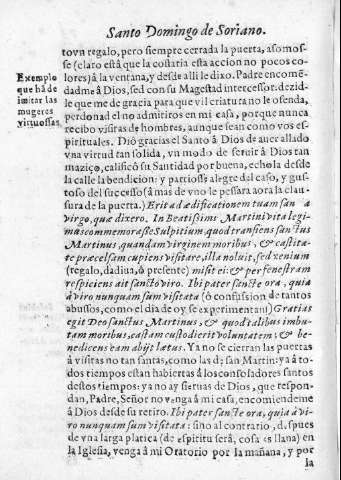 Santo Domingo de Soriano.
tovn regalo, pero siempre cerrada la puerta, asomos-
se (claro està que la costaria esta accion no pocos co-
lores) à la ventana, y desde alli le dixo. Padre encomē-
dadme â Dios, sed con su Magestad intercessor: dezid-
le que me dè gracia para que vil criatura no le ofenda,
perdonad el no admitiros en mi casa, porque nunca
recibo visitas de hombres, aunque sean como vos es-
pirituales. Diò gracias el Santo â Dios de auer allado
vna virtud tan solida, vn modo de seruir â Dios tan
maziço, calificò su Santidad por buena, echola desde
la calle la bendicion: y partiosse alegre del caso, y gus-
toso del successo (à mas de vno le pessara aora la clau-
sura de la puerta.) Erit ad ædificationem tuam san a
virgo, quæ dixero. In Beatissimi Martini vita legi-
mus commemorasse Sulpitium, quod transiens sanctus
Martinus, quandam virginem moribus, & castita-
te præcelsam cupiens visitare, illa noluit, sed xenium
(regalo, dadiua, ô presente) misit ei: & per fenestram
respiciens ait sancto viro. Ibi pater sancte ora, quia
à viro nunquam sum visitata (ò confusion de tantos
abussos, como el dia de oy se experimentan) Gratias
egit Deo sanctus Martinus, & quod talibus imbu-
tam moribus, castam custodierit voluntatem; & be-
nedicens eam abijt lætus. Ya no se cierran las puertas
â visitas no tan santas, como las d; san Martin: ya à to-
dos tiempos estan habiertas â los consoladores santos
destos tiempos: ya no ay sieruas de Dios, que respon-
dan, Padre, Señor no venga â mi casa, encomiendeme
â Dios desde su retiro. Ibi pater sancte ora, quia à vi-
ro nunquam sum visitata: sino al contrario, dspues
de vna larga platica (de espiritu serâ, cosa es llana) en
la Iglesia, venga â mi Oratorio por la mañana, y por
la
Exemplo
que hâ de
imitar las
mugeres
virtuossas.